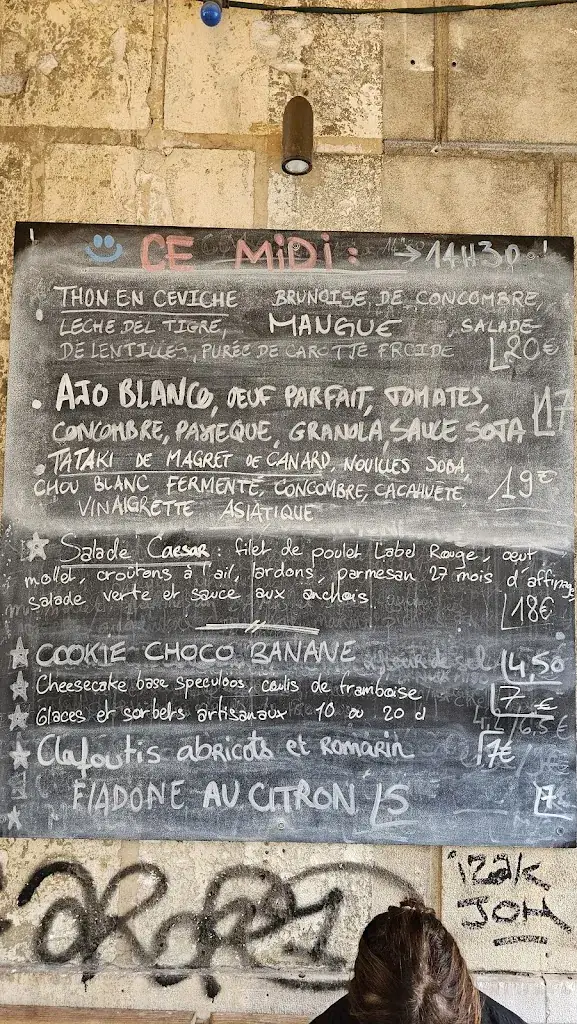 CE MIDI : → 14H30 !
THON EN CEVICHE BRUNOISE DE CONCOMBRE,
LECHE DEL TIGRE, MANGUE, SALADE
DE LENTILLES, PURÉE DE CAROTTE FROIDE 20€
• AJO BLANCO, OEUF PARFAIT, TOMATES,
CONCOMBRE, PASTEQUE, GRANOLA, SAUCE SOJA 17
• TATAKI DE MAGRET DE CANARD, NOUILLES SOBA,
CHOU BLANC FERMENTÉ, CONCOMBRE, CACAHUÈTE 19€
VINAIGRETTE ASIATIQUE
Salade Caesar : filet de poulet Label Rouge, oeuf
mollet, croûtons à l'ail, lardons, parmesan 27 mois d'affinage
salade verte et sauce aux anchois. 18€
COOKIE CHOCO BANANE 4,50
Cheesecake base speculoos, coulis de framboise 7€
Glaces et sorbets artisanaux 1 ou 2 4,2/6,5€
Clafoutis abricots et romarin 7€
FIADONE AU CITRON 7€
izak
JOH